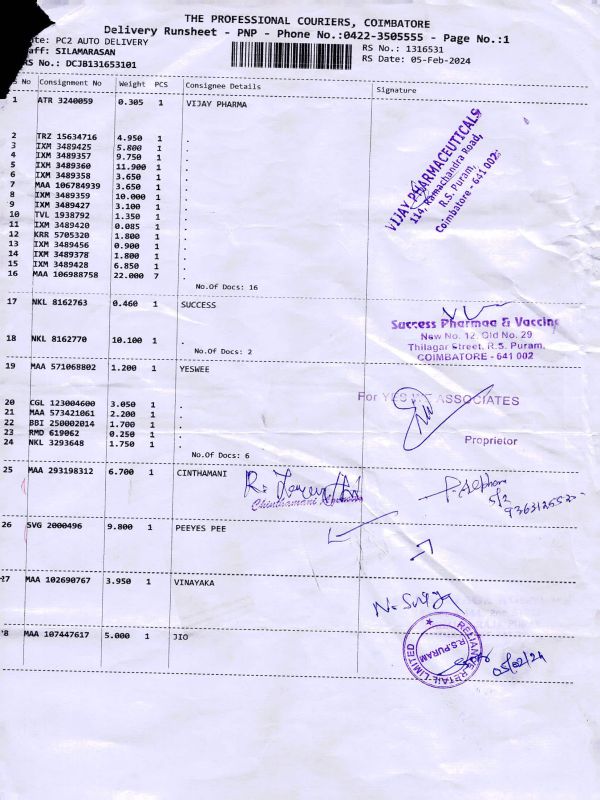 THE PROFESSIONAL COURIERS, COIMBATORE
Delivery Runsheet - PNP - Phone No.:0422-3505555 - Page No.:1
PC2 AUTO DELIVERY
RS No.: 1316531
SILAMARASAN
RS Date: 05-Feb-2024
RS No.: DCJB131653101
No Consignment No Weight PCS Consignee Details Signature
1 ATR 3240059 0.305 1 VIJAY PHARMA
2 TRZ 15634716 4.950 1 .
3 IXM 3489425 5.800 1 .
4 IXM 3489357 9.750 1 .
5 IXM 3489360 11.900 1 .
6 IXM 3489358 3.650 1 .
7 MAA 106784939 3.650 1 .
8 IXM 3489359 10.000 1 .
9 IXM 3489427 3.100 1 .
10 TVL 1938792 1.350 1 .
11 IXM 3489420 0.085 1 .
12 KRR 5705320 1.800 1 .
13 IXM 3489456 0.900 1 .
14 IXM 3489378 1.800 1 .
15 IXM 3489428 6.850 1 .
16 MAA 106988758 22.000 7 .
No.Of Docs: 16
VIJAY PHARMACEUTICALS
114, Ramachandra Road,
R.S. Puram,
Coimbatore - 641 002.
17 NKL 8162763 0.460 1 SUCCESS
18 NKL 8162770 10.100 1 .
No.Of Docs: 2
Success Pharmaa & Vaccine
New No. 12, Old No. 29
Thilagar Street, R.S. Puram,
COIMBATORE - 641 002
19 MAA 571068802 1.200 1 YESWEE
20 CGL 123004600 3.050 1 .
21 MAA 573421061 2.200 1 .
22 BBI 250002014 1.700 1 .
23 RMD 619062 0.250 1 .
24 NKL 3293648 1.750 1 .
No.Of Docs: 6
For YES ASSOCIATES
Proprietor
25 MAA 293198312 6.700 1 CINTHAMANI
Chinthamani
5/2
26 SVG 2000496 9.800 1 PEEYES PEE
27 MAA 102690767 3.950 1 VINAYAKA
8 MAA 107447617 5.000 1 JIO
RELIANCE RETAIL LIMITED
R.S.PURAM
05/02/24